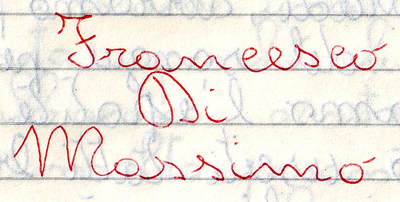 Francesco
Di
Massimo